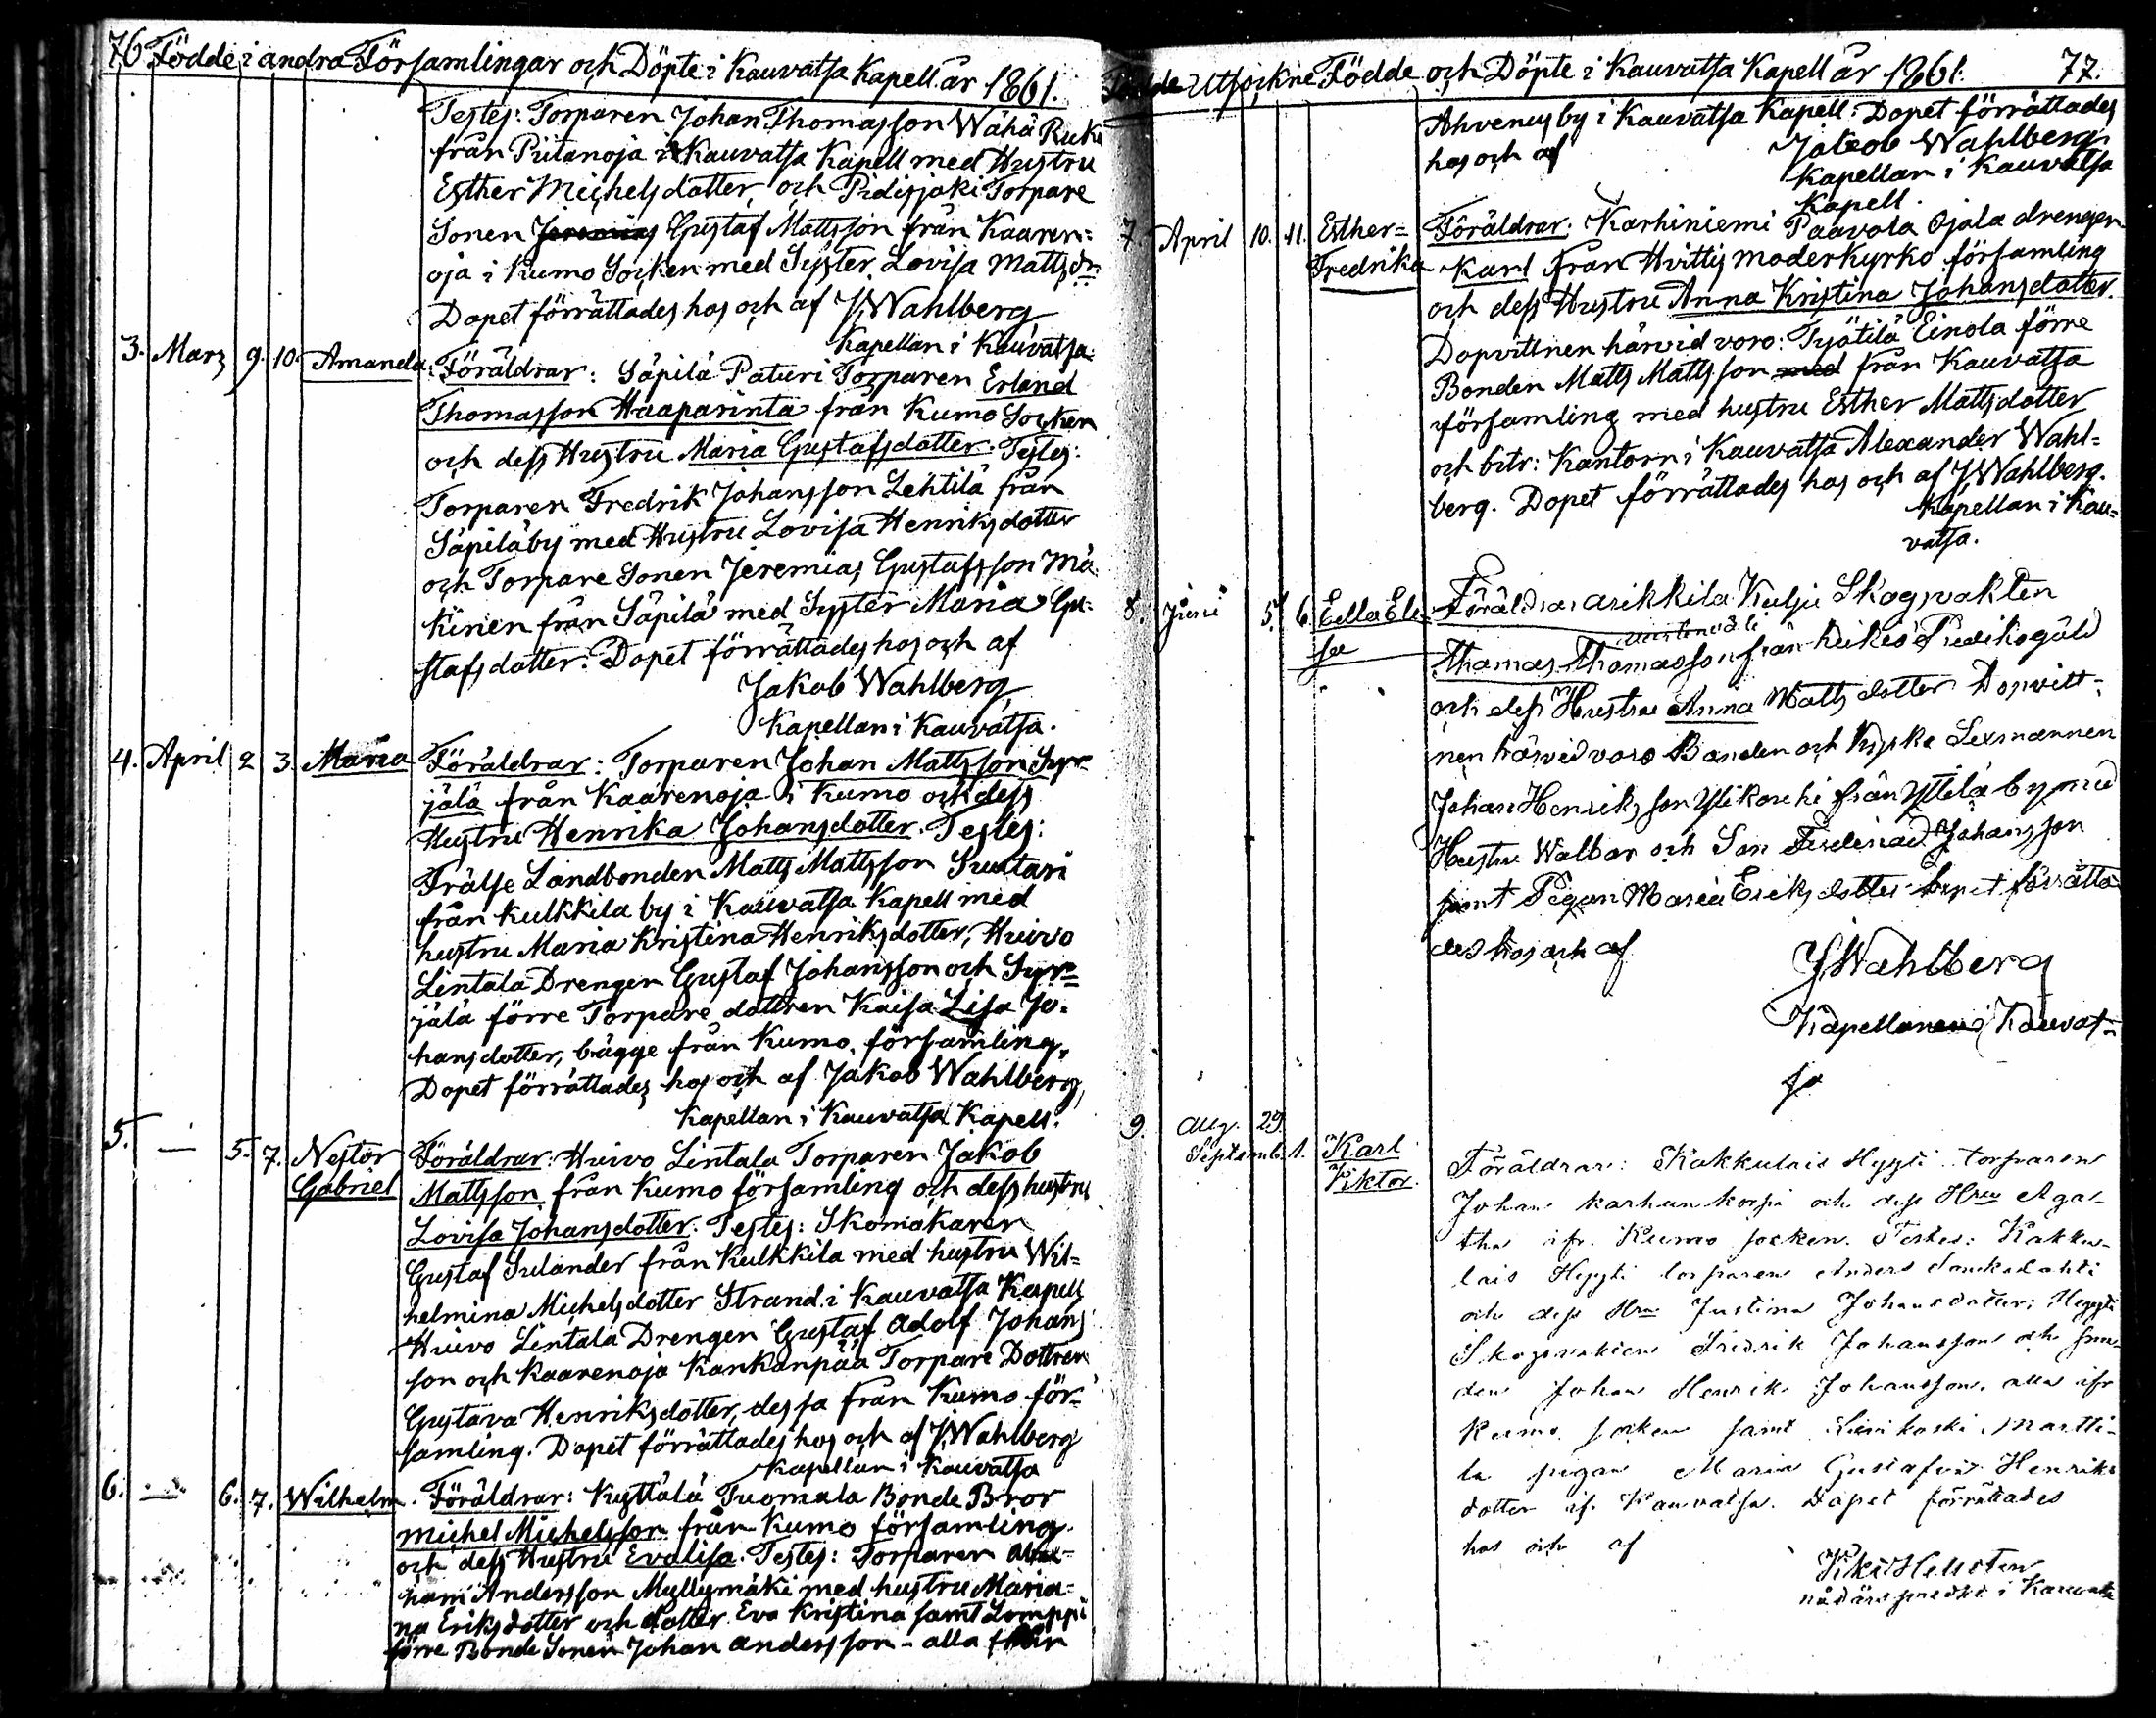 76. Födde i andra Församlingar och Döpte i Kauvatsa Kapell år 1861.
Testes: Torparen Johan Thomasson Wähä Ruka
från Piitanoja i Kauvatsa Kapell med Hustru
Esther Michelsdotter, och Pidisjoki Torpare
Sonen Jeremias Gustaf Mattsson från Kaaren=
oja i Kumo Socken med Syster Lovisa Mattsdr.
Dopet förrättades hos och af J. Wahlberg
Kapellan i Kauvatsa.
3. Mars 9. 10. Amanda. Föräldrar: Säpilä Paturi Torparen Erland
Thomasson Haaparinta från Kumo Socken
och dess Hustru Maria Gustafsdotter. Testes:
Torparen Fredrik Johansson Lehtilä från
Säpilä by med Hustru Lovisa Henriksdotter
och Torpare Sonen Jeremias Gustafsson Mä=
kinen från Säpilä med Syster Maria Gu=
stafsdotter. Dopet förrättades hos och af
Jakob Wahlberg,
Kapellan i Kauvatsa.
4. April 2 3. Maria Föräldrar: Torparen Johan Mattsson Syr=
jälä från Kaarenoja i Kumo och dess
Hustru Henrika Johansdotter. Testes:
Frälse Landbonden Matts Mattsson Suutari
från Kulkkila by i Kauvatsa Kapell med
hustru Maria Kristina Henriksdotter, Huivo
Lintala Drengen Gustaf Johansson och Syr=
jälä förre Torpare dottren Kaisa Lisa Jo=
hansdotter, bägge från Kumo församling,
Dopet förrättades hos och af Jakob Wahlberg,
Kapellan i Kauvatsa Kapell.
5. — 5. 7. Nestor Föräldrar: Huivo Lintala Torparen Jakob
Gabriel Mattsson från Kumo församling och dess hustru
Lovisa Johansdotter. Testes: Skomakaren
Gustaf Sulander från Kulkkila med hustru Wil=
helmina Michelsdotter Strand i Kauvatsa Kapell
Huivo Lintala Drengen Gustaf Adolf Johans
son och Kaarenoja Kankanpää Torpare Dottren
Gustava Henriksdotter, dessa från Kumo för=
samling. Dopet förrättades hos och af J. Wahlberg
Kapellan i Kauvatsa
6. — 6. 7. Wilhelm. Föräldrar: Kyttälä Tuomala Bonde Bror
Michel Michelsson från Kumo församling
och dess Hustru Evalisa. Testes: Torparen Abra=
ham Andersson Myllymäki med hustru Maria=
na Eriksdotter och dotter Eva Kristina samt Lomppi
förre Bonde Sonen Johan Andersson - alla från
Utsockne Födde och Döpte i Kauvatsa Kapell år 1861. 77.
Ahvenus by i Kauvatsa Kapell. Dopet förrättades
hos och af Jakob Wahlberg
Kapellan i Kauvatsa
Kapell.
7. April 10. 11. Esther= Föräldrar: Karhiniemi Paavola Ojala drengen
Fredrika Karl från Hvittis moderkyrko församling
och dess Hustru Anna Kristina Johansdotter.
Dopvittnen härvid voro: Tyätilä Einola förre
Bonden Matts Mattsson med från Kauvatsa
församling med hustru Esther Mattsdotter
och bitr: Kantorn i Kauvatsa Alexander Wahl=
berg. Dopet förrättades hos och af J. Wahlberg.
Kapellan i Kau=
vatsa.
8. Juni 5. 6. Föräldrar Kulju Skogvakten
sa Thomas Thomasson från
och dess Hustru Anna Mattsdotter Dopvitt=
nen härvid voro Bonden och Lexmannen
Johan Henriksson från Yttilä by med
Hustru Walbor och Son Ferdinad Johansson
samt Pigan Maria Eriksdotter Dopet förrätta
des hos och af J. Wahlberg
Kapellanen i Kauvat=
sa
9. Aug. 29.
Septemb. 1. Karl Föräldrar: Kakkulais Hyyti torparen
Viktor. Johan Karhunkorpi och dess Hru Aga=
tha ifr. Kumo socken. Testes: Kakku=
lais Hyyti torparen Anders
och dess Hru Justina Johansdotter; Hyyti
Skogvakten Fredrik Johansson och
den Johan Henrik Johansson, alla ifr
Kumo socken samt Martti=
la pigan Maria Gustafva Henriks
dotter ifr Kauvatsa. Dopet förrättades
hos och af
Hellsten
nådårspredikt i Kauvatsa